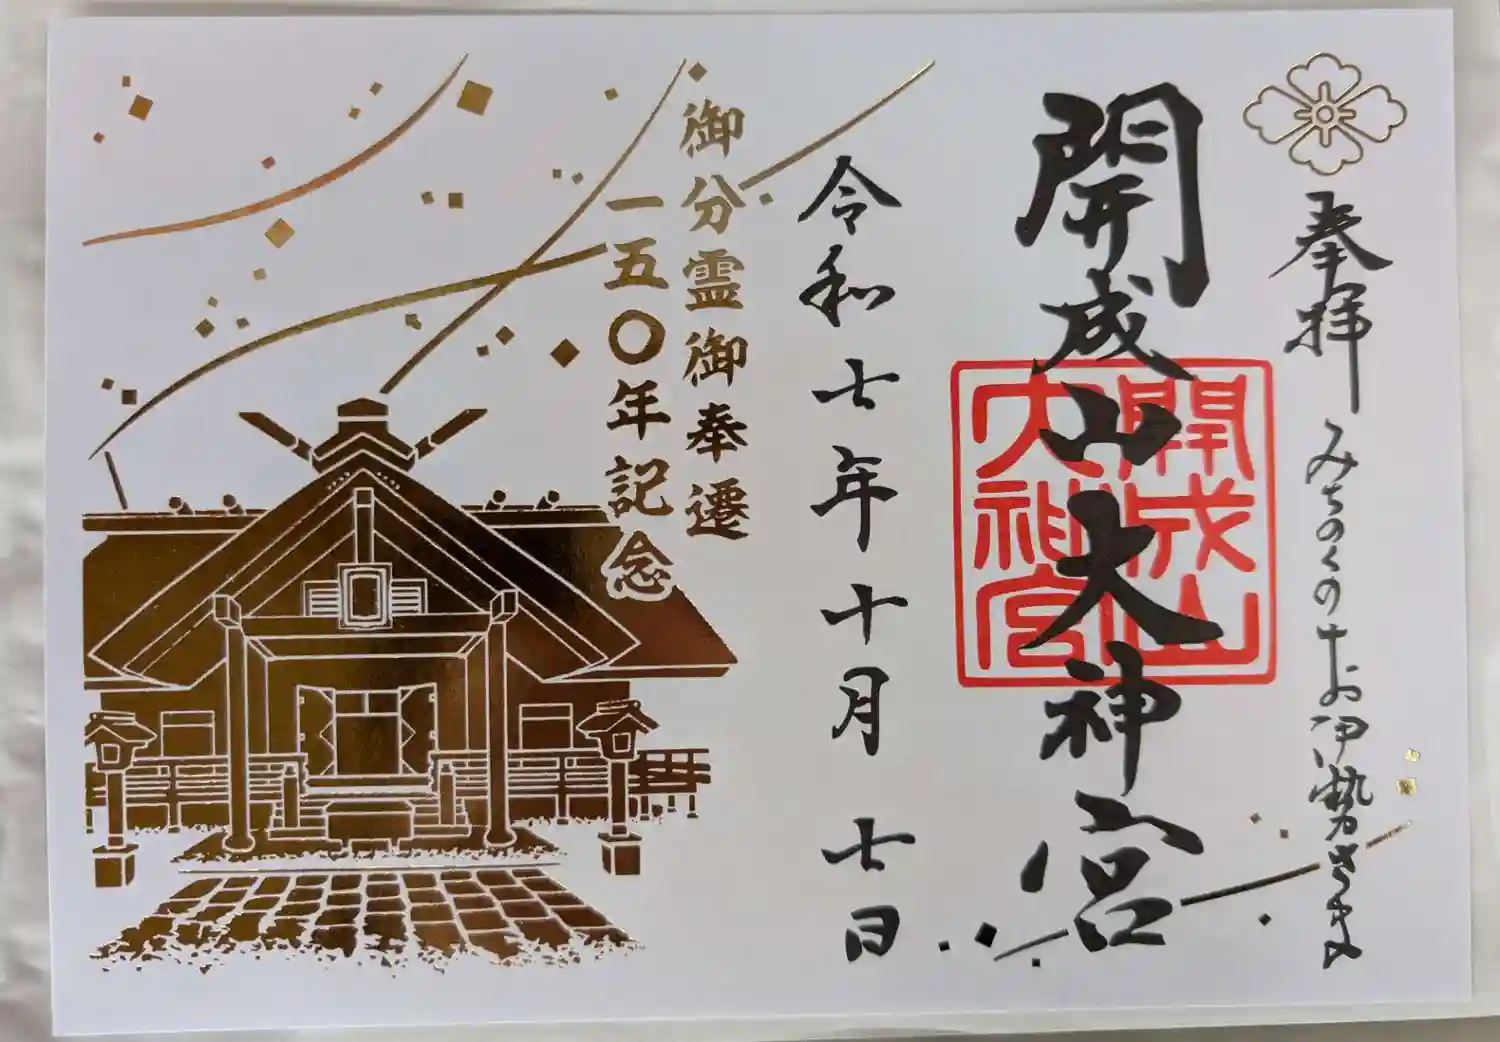 奉拝 みちのくのおお伊勢さま
開成山大神宮
開成山
大神宮
令和七年十月七日
御分霊御奉遷
一五〇年記念